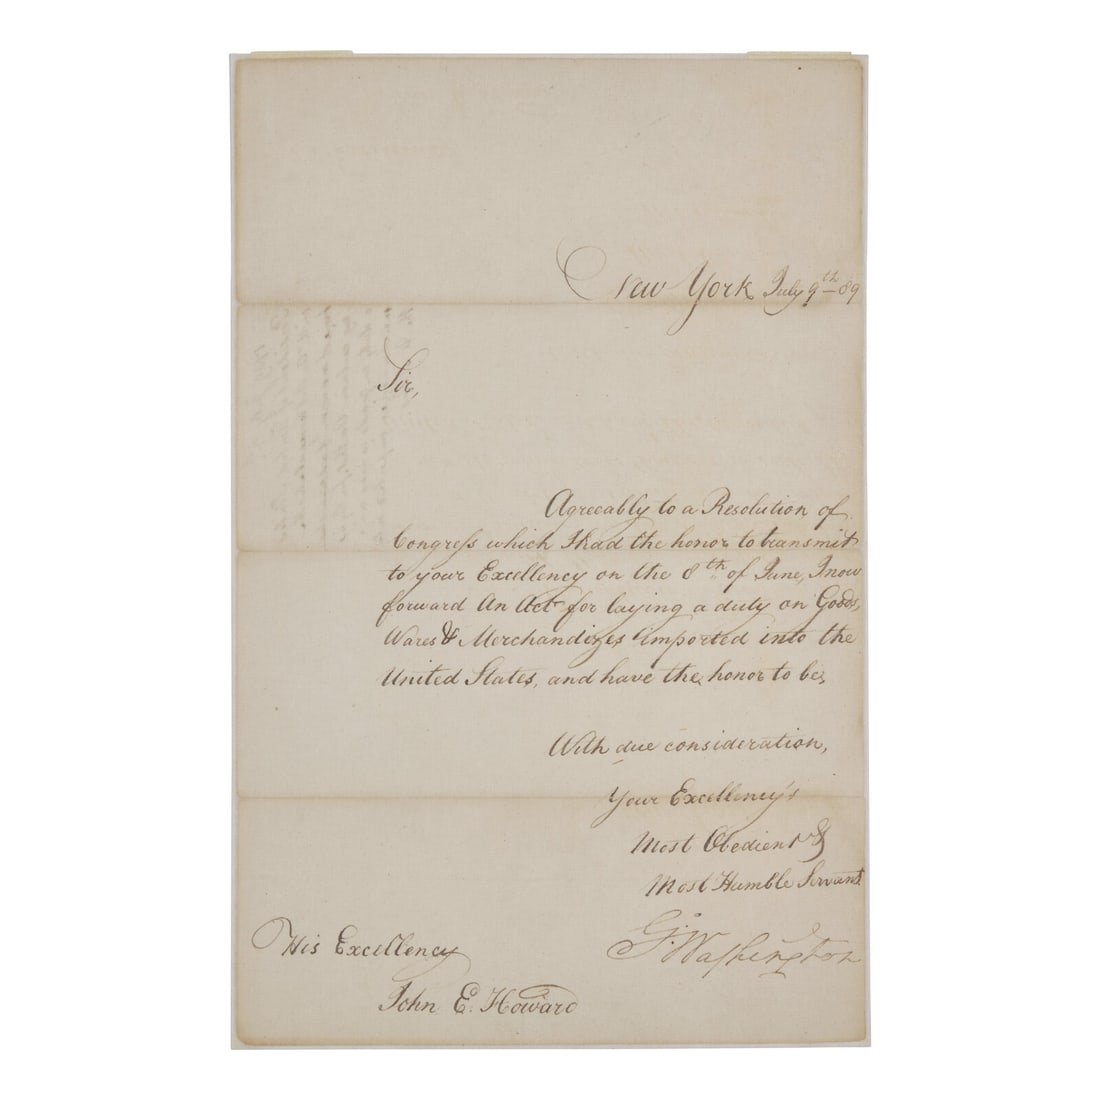 New York July 9th 89
Sir,
Agreeably to a Resolution of
Congress which I had the honor to transmit
to your Excellency on the 8th of June, I now
forward An Act for laying a duty on Goods,
Wares & Merchandizes imported into the
United States, and have the honor to be,
With due consideration,
Your Excellency's
Most Obedient &
Most Humble Servant
Go: Washington
His Excellency
John E. Howard